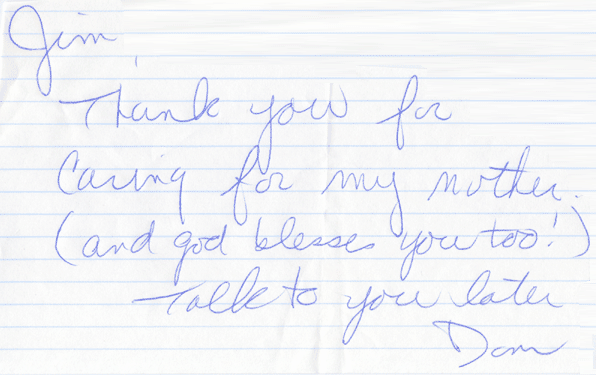 Jim,
Thank you for
Caring for my mother.
(and god blesses you too!)
Talk to you later